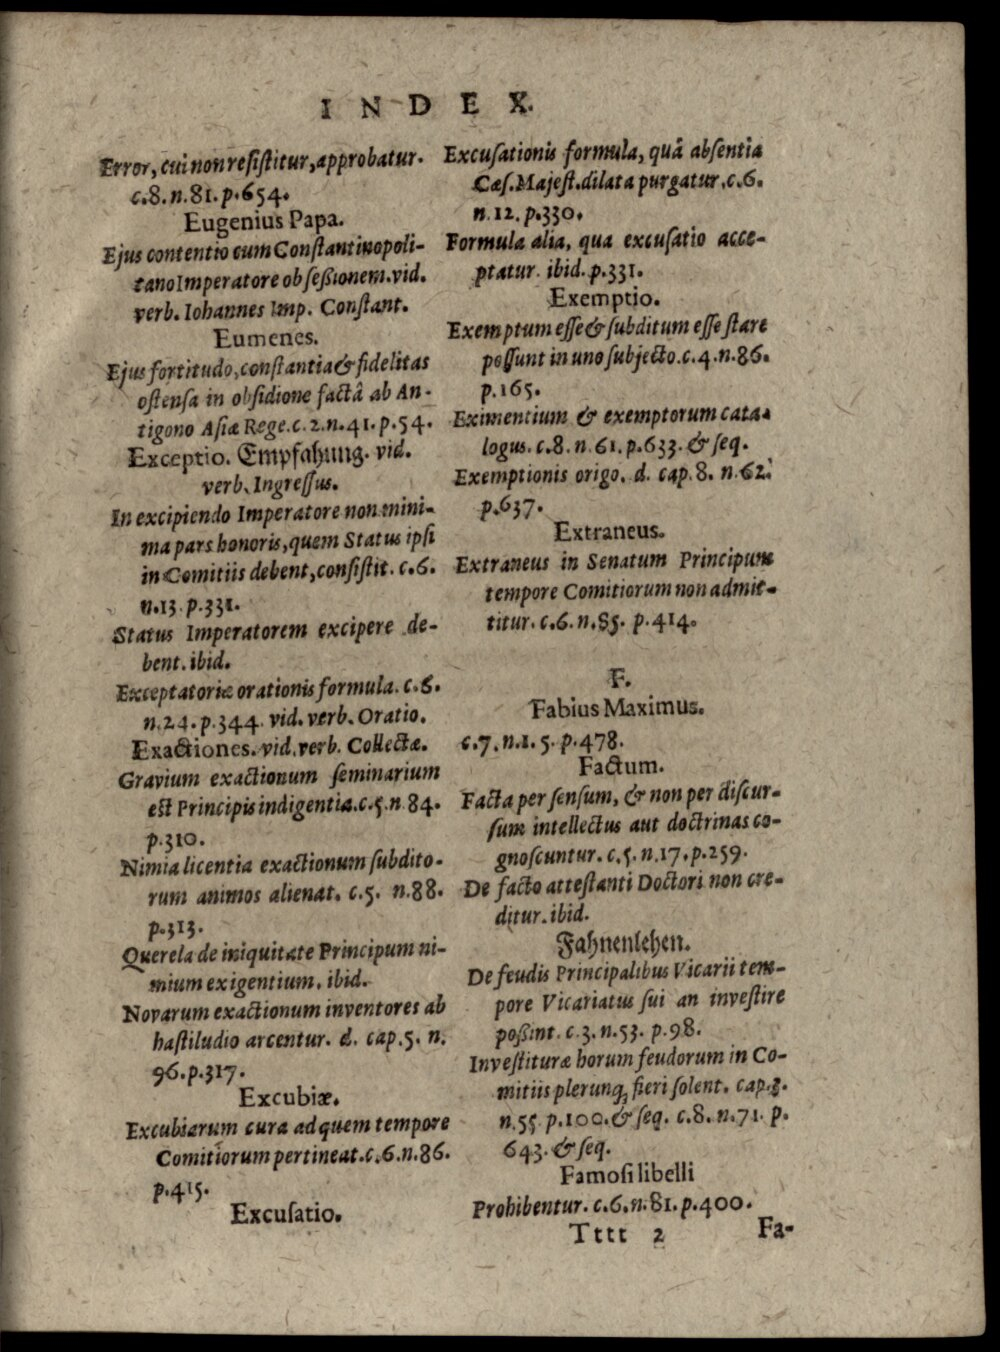 INDEX.
Error, cui non resistitur, approbatur.
c.8. n.81. p.654.
Eugenius Papa.
Ejus contentio cum Constantinopoli-
tano Imperatore ob seßionem. vid.
verb. Iohannes Imp. Constant.
Eumenes.
Ejus fortitudo, constantia & fidelitas
ostensa in obsidione factâ ab An-
tigono Asiæ Rege. c.2. n.41. p.54.
Exceptio. Empfahung. vid.
verb. Ingressus.
In excipiendo Imperatore non mini-
ma pars honoris, quem Status ipsi
in Comitiis debent, consistit. c.6.
n.13. p.331.
Status Imperatorem excipere de-
bent. ibid.
Exceptatoriæ orationis formula. c.6.
n.24. p.344. vid. verb. Oratio.
Exactiones. vid. verb. Collectæ.
Gravium exactionum seminarium
est Principis indigentia. c.5. n.84.
p.310.
Nimia licentia exactionum subdito-
rum animos alienat. c.5. n.88.
p.313.
Querela de iniquitate Principum ni-
mium exigentium. ibid.
Novarum exactionum inventores ab
hastiludio arcentur. d. cap.5. n.
96. p.317.
Excubiæ.
Excubiarum cura ad quem tempore
Comitiorum pertineat. c.6. n.86.
p.415.
Excusatio.
Excusationis formula, quâ absentia
Cæs. Majest. dilata purgatur. c.6.
n.12. p.330.
Formula alia, qua excusatio acce-
ptatur. ibid. p.331.
Exemptio.
Exemptum esse & subditum esse stare
possunt in uno subjecto. c.4. n.86.
p.165.
Eximentium & exemptorum cata-
logus. c.8. n.61. p.633. & seq.
Exemptionis origo. d. cap.8. n.62.
p.637.
Extraneus.
Extraneus in Senatum Principum
tempore Comitiorum non admit-
titur. c.6. n.85. p.414.
F.
Fabius Maximus.
c.7. n.1. 5. p.478.
Factum.
Facta per sensum, & non per discur-
sum intellectus aut doctrinas co-
gnoscuntur. c.5. n.17. p.259.
De facto attestanti Doctori non cre-
ditur. ibid.
Fahnenlehen.
De feudis Principalibus Vicarii tem-
pore Vicariatus sui an investire
poßint. c.3. n.53. p.98.
Investituræ horum feudorum in Co-
mitiis plerunq; fieri solent. cap.3.
n.55. p.100. & seq. c.8. n.71. p.
643. & seq.
Famosi libelli
Prohibentur. c.6. n.81. p.400.
Tttt 2
Fa-